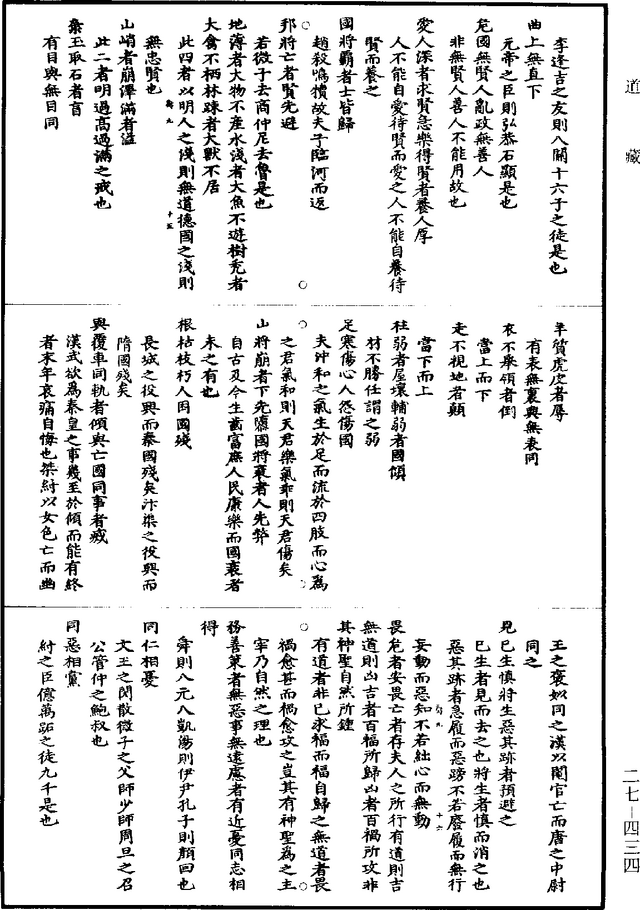 道藏
李逢吉之友則八關十六子之徒是也
曲上無直下
元帝之臣則弘恭石顯是也
危國無賢人亂政無善人
非無賢人善人不能用故也
愛人深者求賢急樂得賢者養人厚
人不能自愛待賢而愛之人不能自養待
賢而養之
國將霸者士皆歸
趙殺鳴犢故夫子臨河而返
邦將亡者賢先避
若微子去商仲尼去魯是也
地薄者大物不產水淺者大魚不遊樹禿者
大禽不栖林踈者大獸不居
此四者以明人之淺則無道德國之淺則
無忠賢也
山峭者崩澤滿者溢
此二者明過高過滿之戒也
棄玉取石者盲
有目與無目同
羊質虎皮者辱
有表無裏與無表同
衣不舉領者倒
當上而下
走不視地者顛
當下而上
柱弱者屋壞輔弱者國傾
材不勝任謂之弱
足寒傷心人怨傷國
夫沖和之氣生於足而流於四肢而心為
之君氣和則天君樂氣乖則天君傷矣
山將崩者下先隳國將衰者人先弊
自古及今生齒富庶人民康樂而國衰者
未之有也
根枯枝朽人困國殘
長城之役興而秦國殘矣汴渠之役興而
隋國殘矣
與覆車同軌者傾與亡國同事者滅
漢武欲為秦皇之事幾至於傾而能有終
者末年哀痛自悔也桀紂以女色亡而幽
王之褒姒同之漢以閹官亡而唐之中尉
同之
見已生慎將生惡其跡者預避之
已生者見而去之也將生者慎而消之也
惡其跡者急履而惡蹡不若廢履而無行
妄動而惡知不若絀心而無動
畏危者安畏亡者存夫人之所行有道則吉
無道則凶吉者百福所歸凶者百禍所攻非
其神聖自然所鍾
有道者非己求福而福自歸之無道者畏
禍愈甚而禍愈攻之豈其有神聖為之主
宰乃自然之理也
務善策者無惡事無遠慮者有近憂同志相
得
舜則八元八凱湯則伊尹孔子則顏回也
同仁相憂
文王之閎散微子之父師少師周旦之召
公管仲之鮑叔也
同惡相黨
紂之臣億萬跖之徒九千是也
二七－四三四